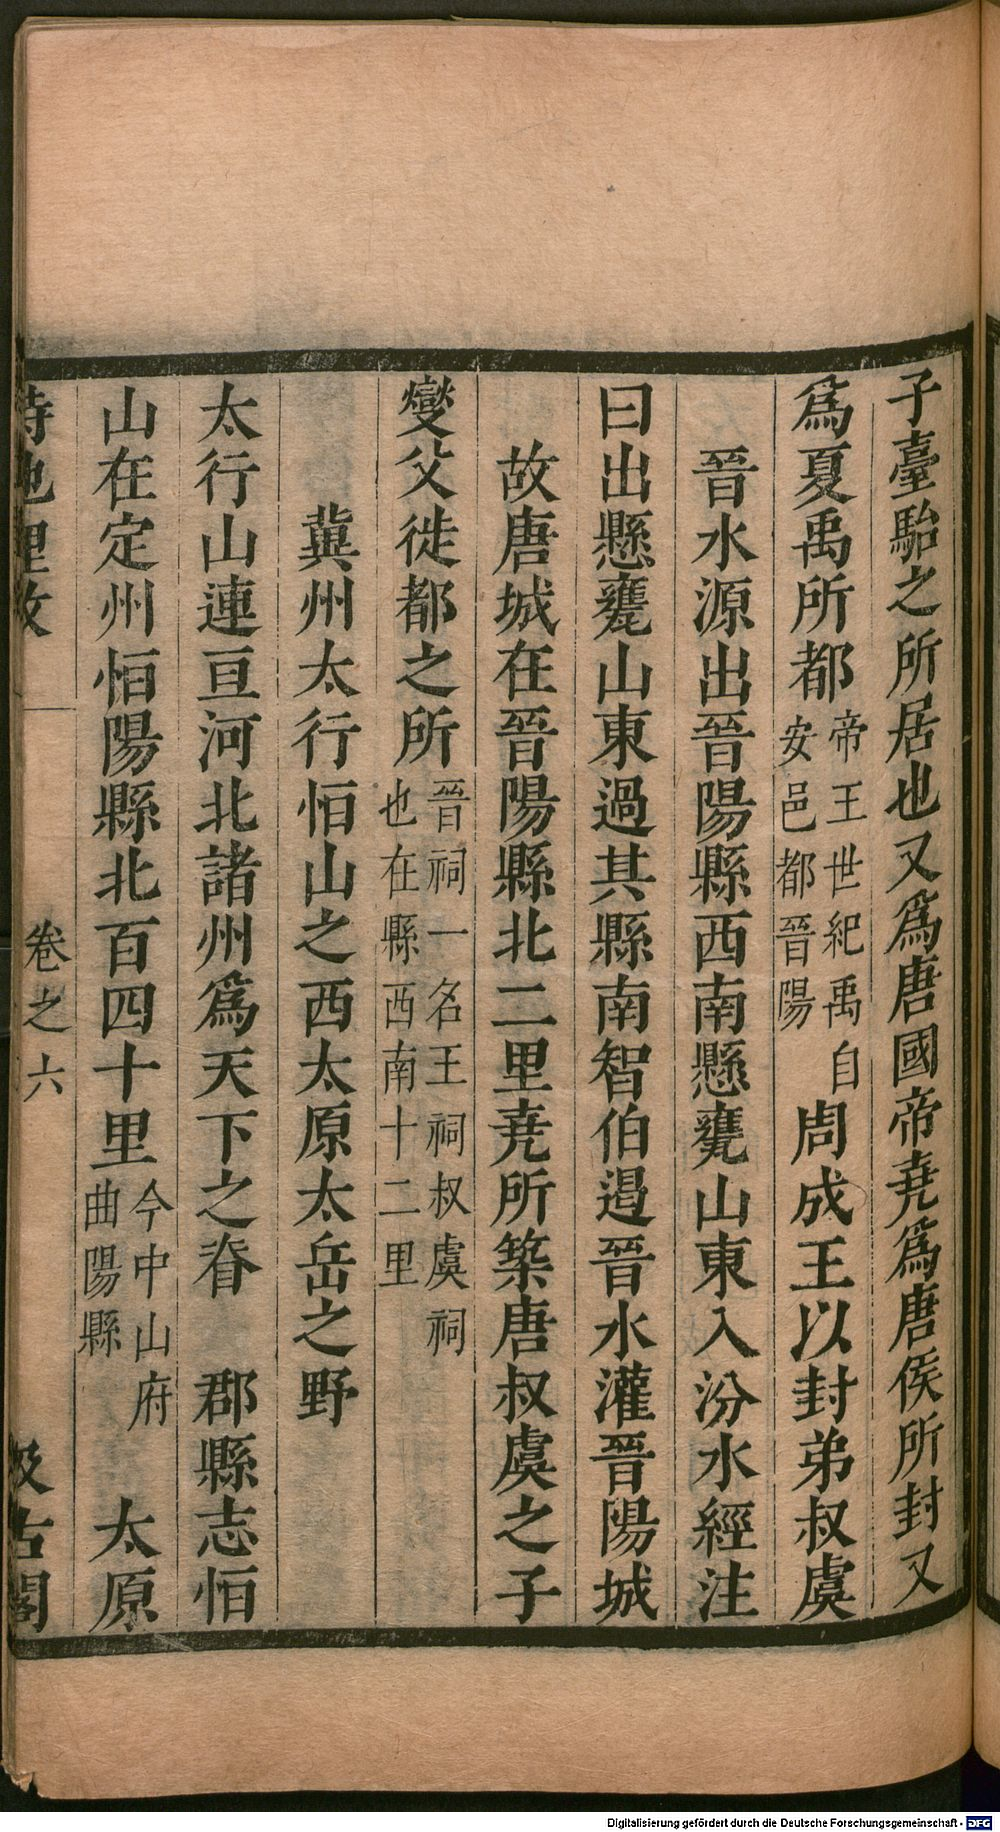 子臺駘之所居也又爲唐國帝堯爲唐侯所封又
爲夏禹所都帝王世紀禹自安邑都晉陽周成王以封弟叔虞
晉水源出晉陽縣西南懸甕山東入汾水經注
曰出懸甕山東過其縣南智伯遏晉水灌晉陽城
故唐城在晉陽縣北二里堯所築唐叔虞之子
燮父徙都之所晉祠一名王祠叔虞祠也在縣西南十二里
冀州太行恒山之西太原太岳之野
太行山連亘河北諸州爲天下之脊 郡縣志恒
山在定州恒陽縣北百四十里今中山府曲陽縣 太原
詩地理攷 卷之六 汲古閣
Digitalisierung gefördert durch die Deutsche Forschungsgemeinschaft - DFG